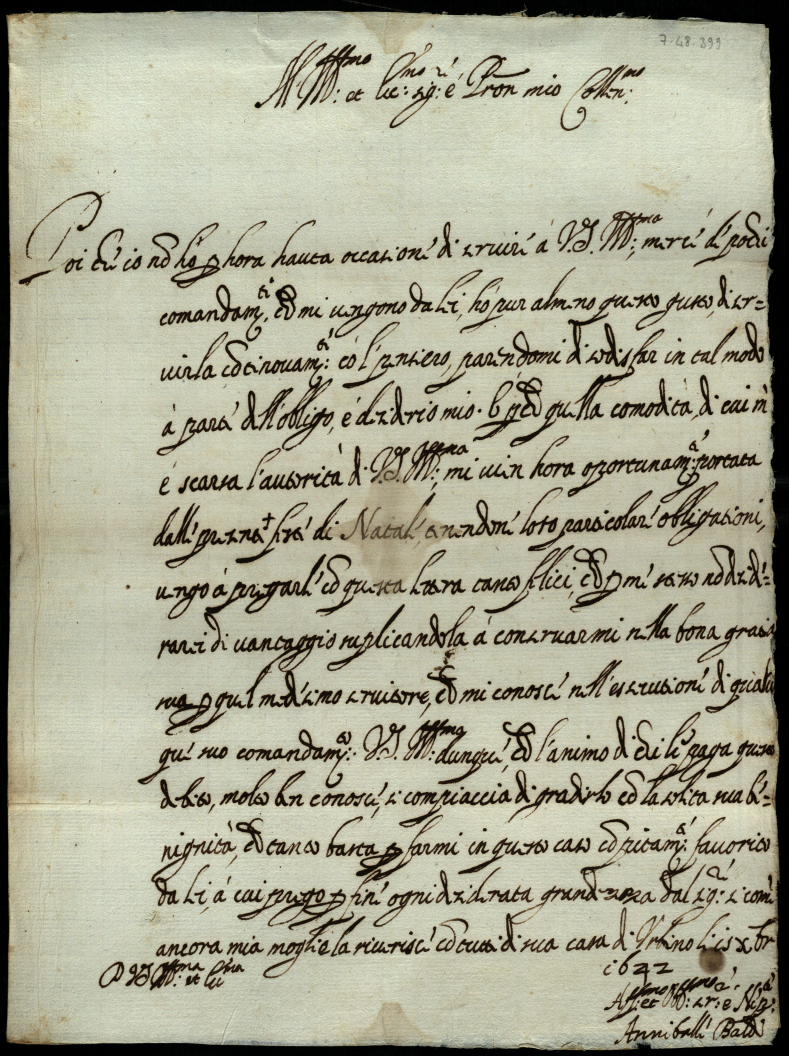 7.48.399
Ill.mo et Ecc.mo Sig.re e Pron mio Colen.mo
Poi che io nõ hò p hora hauta occasione di seruire à V.S. Ill.ma; mercè de pochi
comandam.ti, che mi uengono da lei, hò pur almeno questo gusto, di ser=
uirla cõtinouam.te: cõ l pensiero, parendomi di sodisfar in tal modo
à parte dell'obligo, e desiderio mio. E pche quella comodità, di cui m'
è scarsa l'autorità di V.S. Ill.ma; mi uien hora oportunam.te portata
dalle presenti feste di Natale, tenendone loro particolare obligatione,
uengo à pregarle cõ questa lettera tanto felici, che p me stesso nõ deside=
rarei di uantaggio suplicandola à conseruarmi nella bona gratia
sua p quel medesimo seruitore, che mi conosce nell'essecutione di qualun
que suo comandam.to: V.S. Ill.ma: dunque, che l'animo di chi le paga questo
debito, molto ben conosce, si compiaccia di gradirlo cõ la solita sua be=
nignità, che tanto basta p farmi in questo caso cõpitam.te: fauorito
da lei, à cui prego p fine ogni desiderata grandezza dal Sig.re: si come
ancora mia moglie la riuerisce cõ tutti di sua casa di Vrbino li 15 Xbr
1622
D V.S. Ill.ma et Ecc.ma
Aff.mo et Obl.mo ser.re e Nip.te
Anniballe Baldi